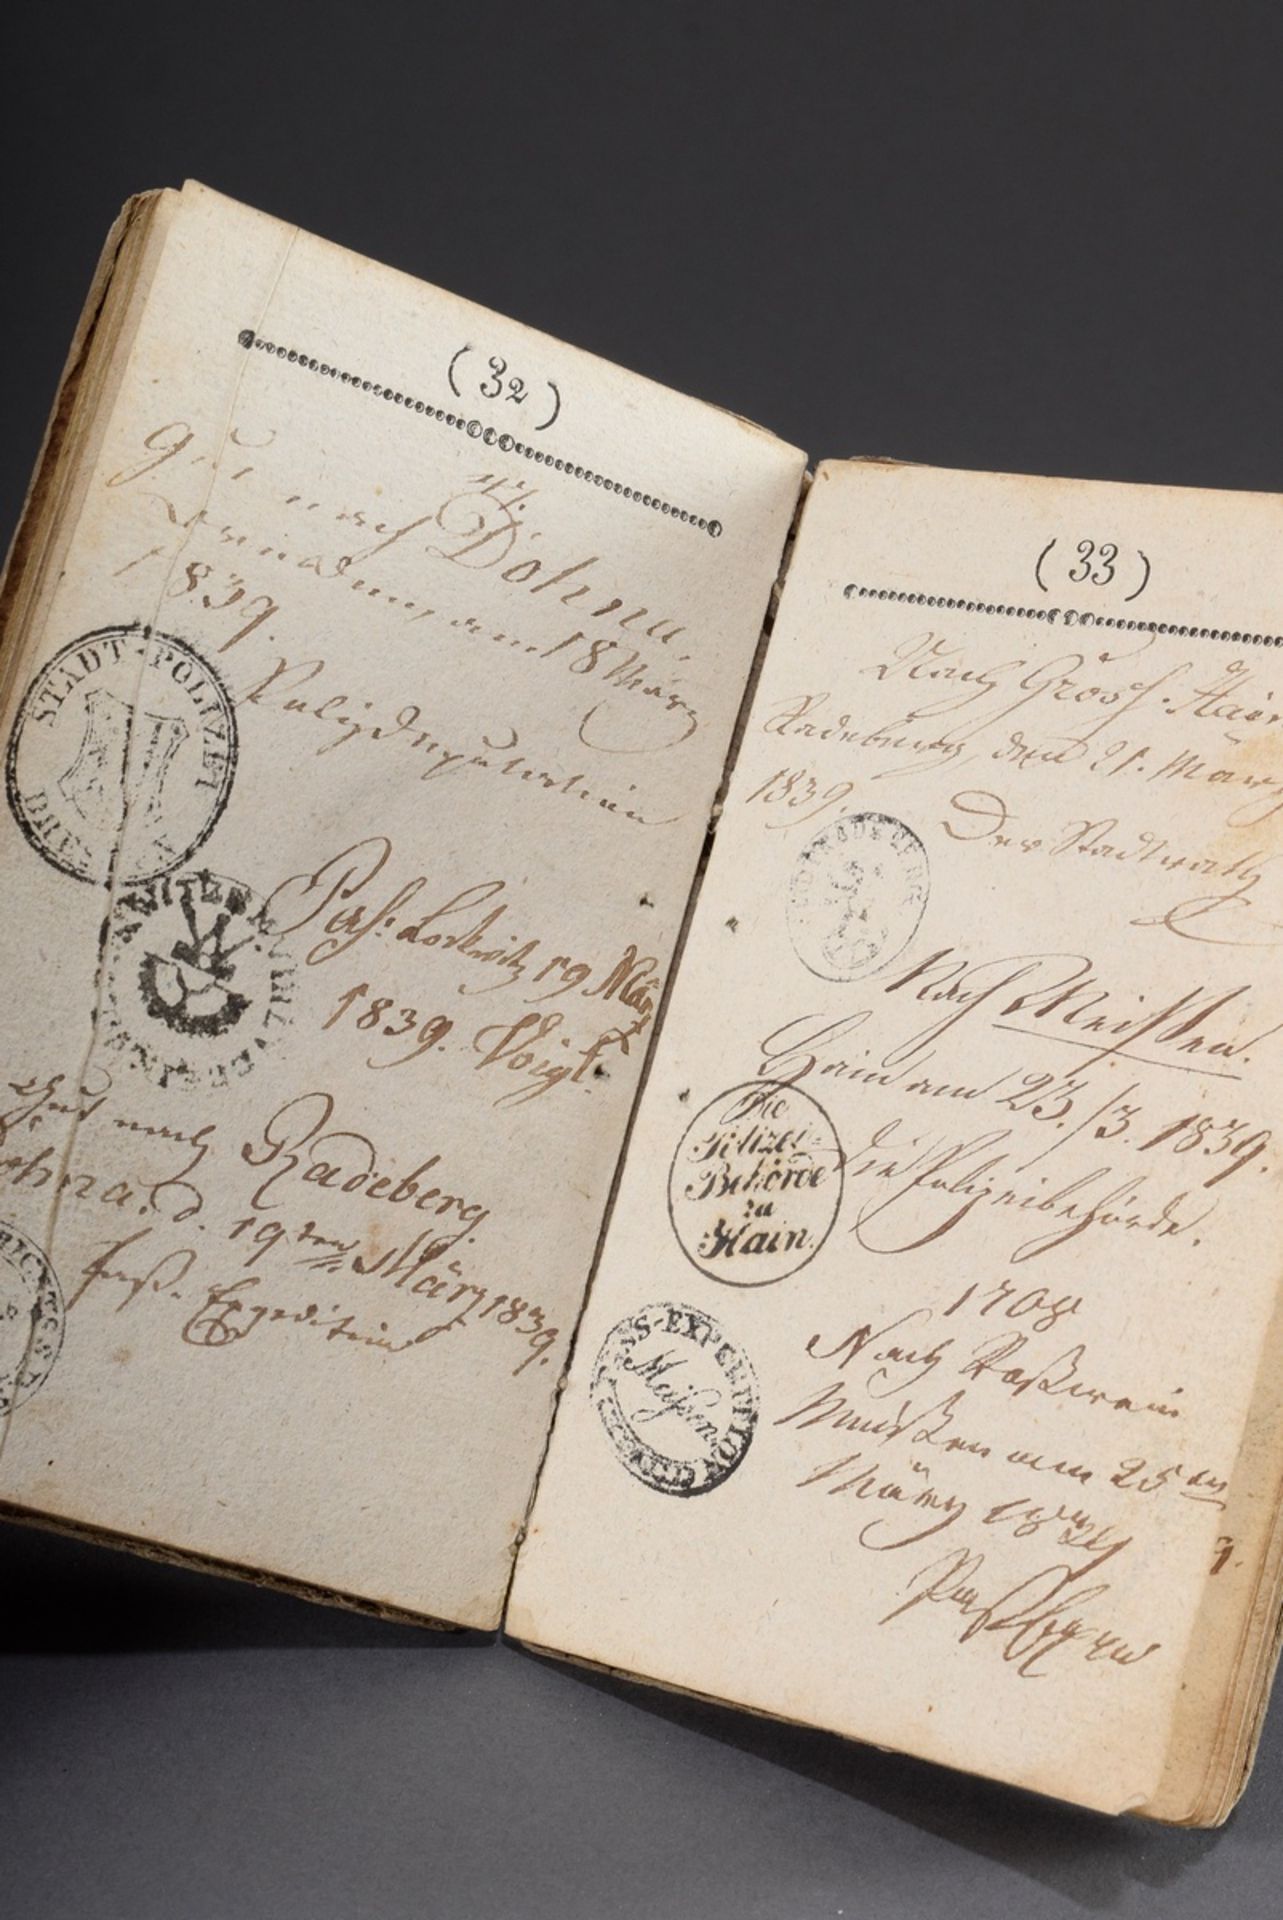 (32)
gut nach Dohna.
Dresden, am 18 März
1839.
STADT-POLIZEI
Polizeideputation
Pass: Lockwitz 19 März
1839. Voigt.
Gut nach Radeberg.
Dohna. d. 19ten März 1839.
Pass. Expedition
(33)
Nach Gross. Hain
Radeburg, den 21. März
1839.
Der Stadtrath
Nach Meissen.
Hain am 23./3. 1839.
Die Polizeibehörde.
Die
Polizei-
Behörde
zu
Hain.
1708
PASS-EXPEDITION
Meißen
Nach Roßwein
Meißen am 25
März